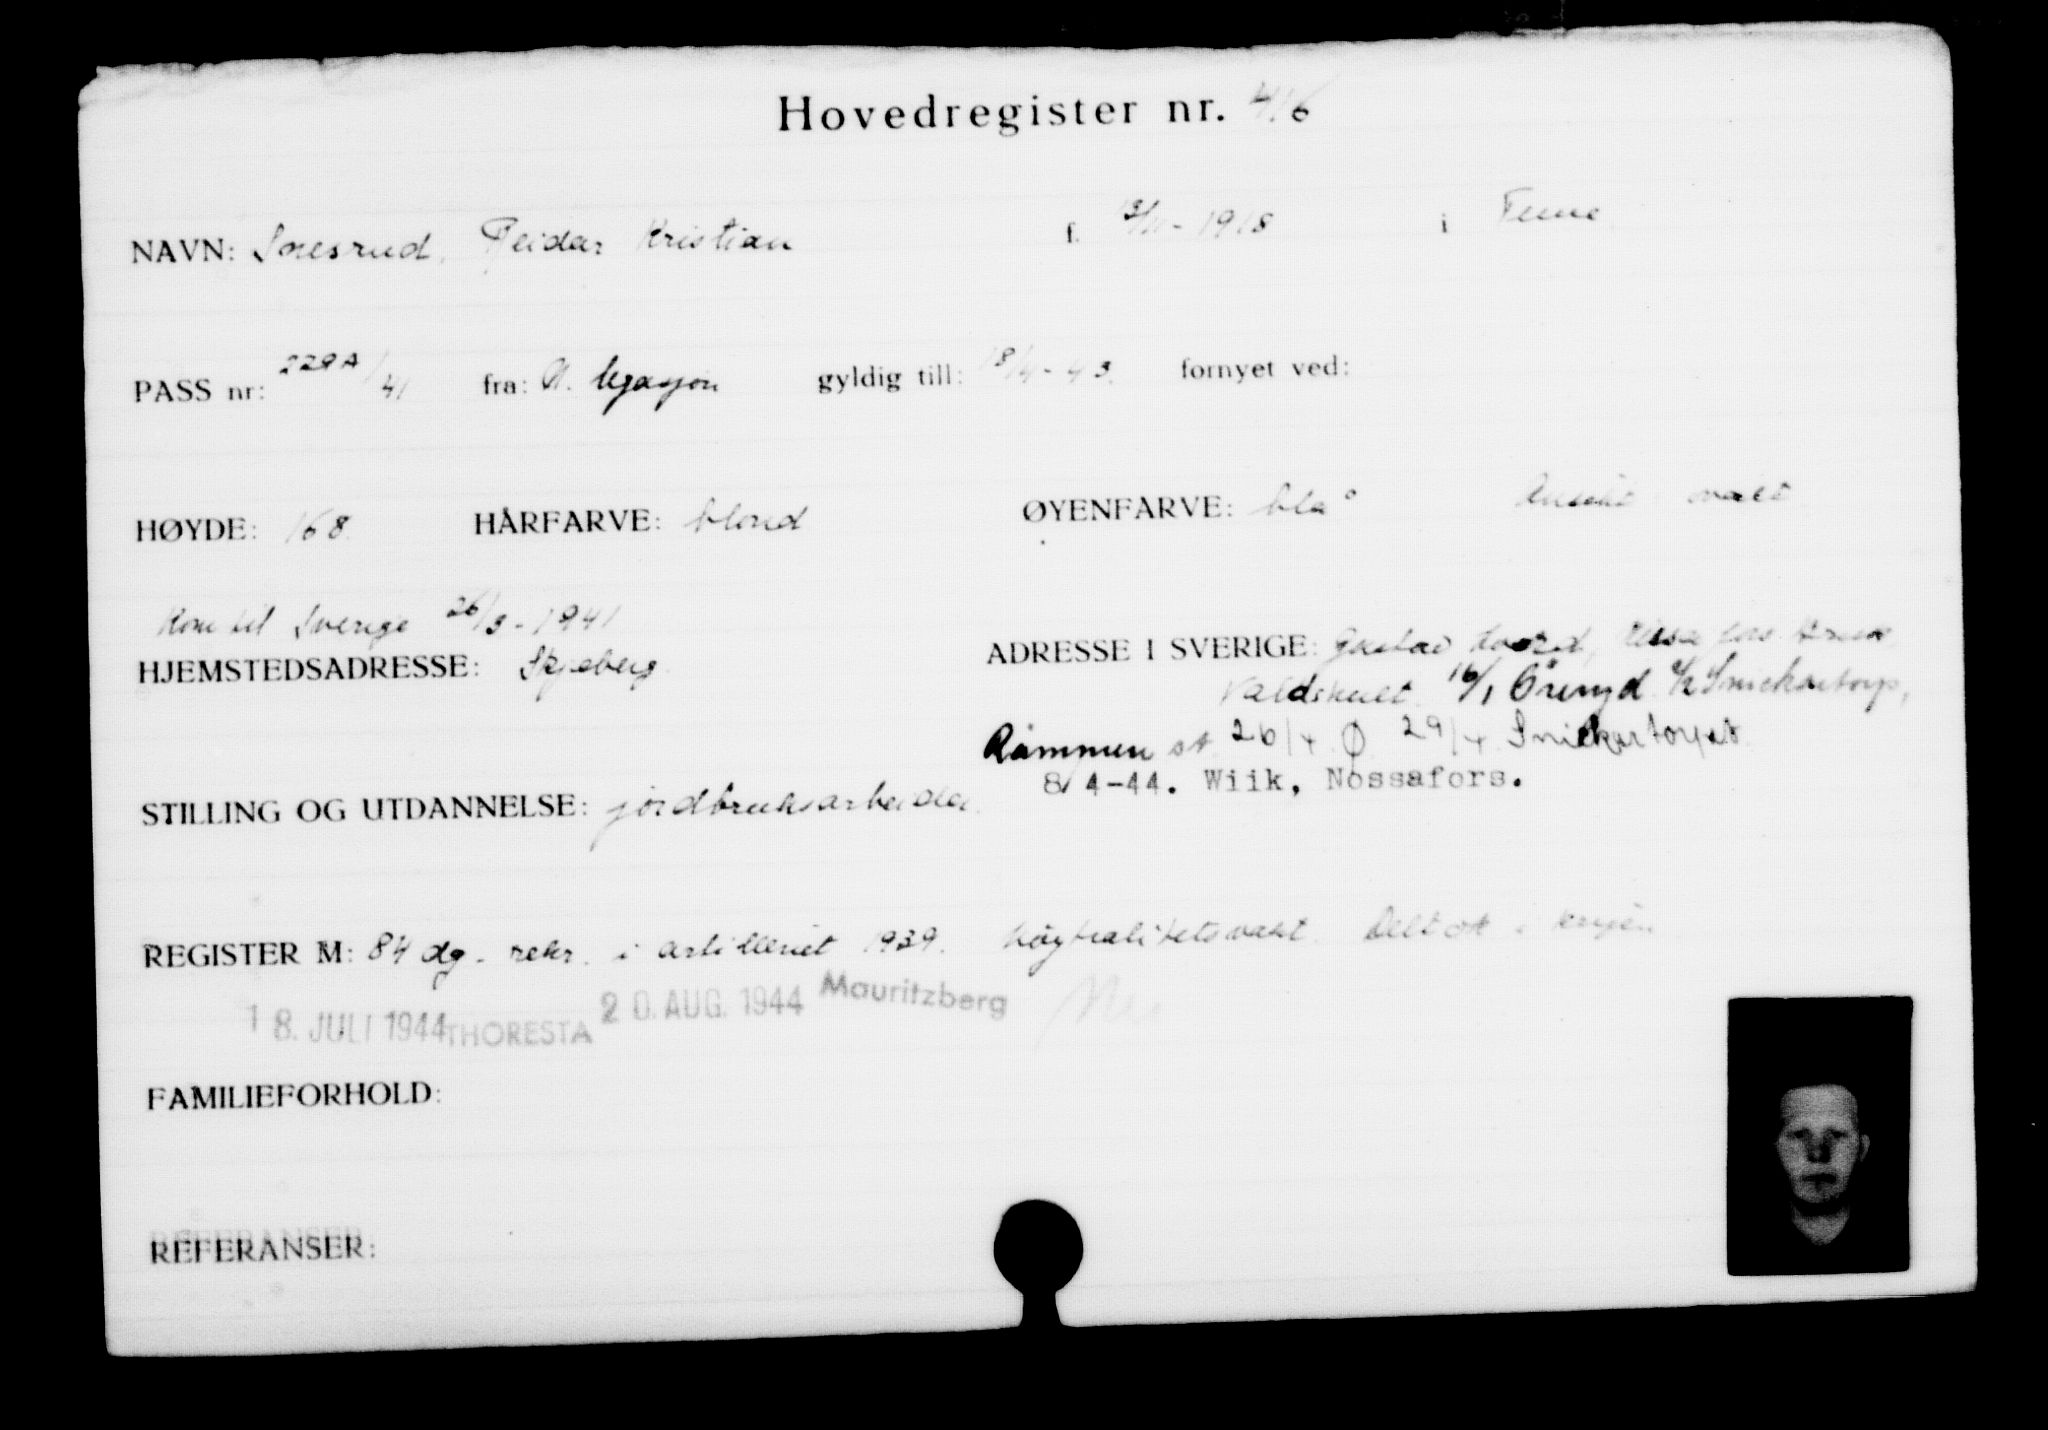 Hovedregister nr. 416
NAVN: Snesrud, Reidar Kristian f. 13/11-1918 i Fume
PASS nr: 229A/41 fra: N. legasjon gyldig till: 18/4-43. fornyet ved:
HØYDE: 168 HÅRFARVE: blond ØYENFARVE: blå Ansikt ovalt
Kom til Sverige 26/3-1941
HJEMSTEDSADRESSE: Skjeberg ADRESSE I SVERIGE: Gustav
16/1 Snickartorp,
Råmmen st 26/4 Ø 29/4 Snickartorpet
8/4-44. Wiik, Nossafors.
STILLING OG UTDANNELSE: jordbruksarbeider.
REGISTER M: 84 dg. rekr. i artilleriet 1939. Nøytralitetsvakt. Deltok i krigen
18. JULI 1944 THORESTA 20. AUG. 1944 Mauritzberg
FAMILIEFORHOLD:
REFERANSER: